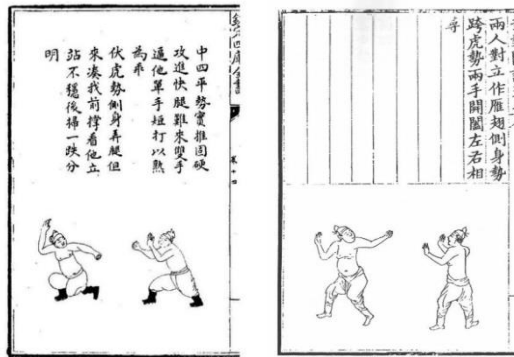 欽定四庫全書
中四平勢實推固硬
攻進快腿難來雙手
逼他單手短打以熟
為乖
伏虎勢側身弄腿但
來湊我前撐看他立
站不穩後掃一跌分
明
卷十四
兩人對立作雁翅側身勢
跨虎勢兩手開闔左右相